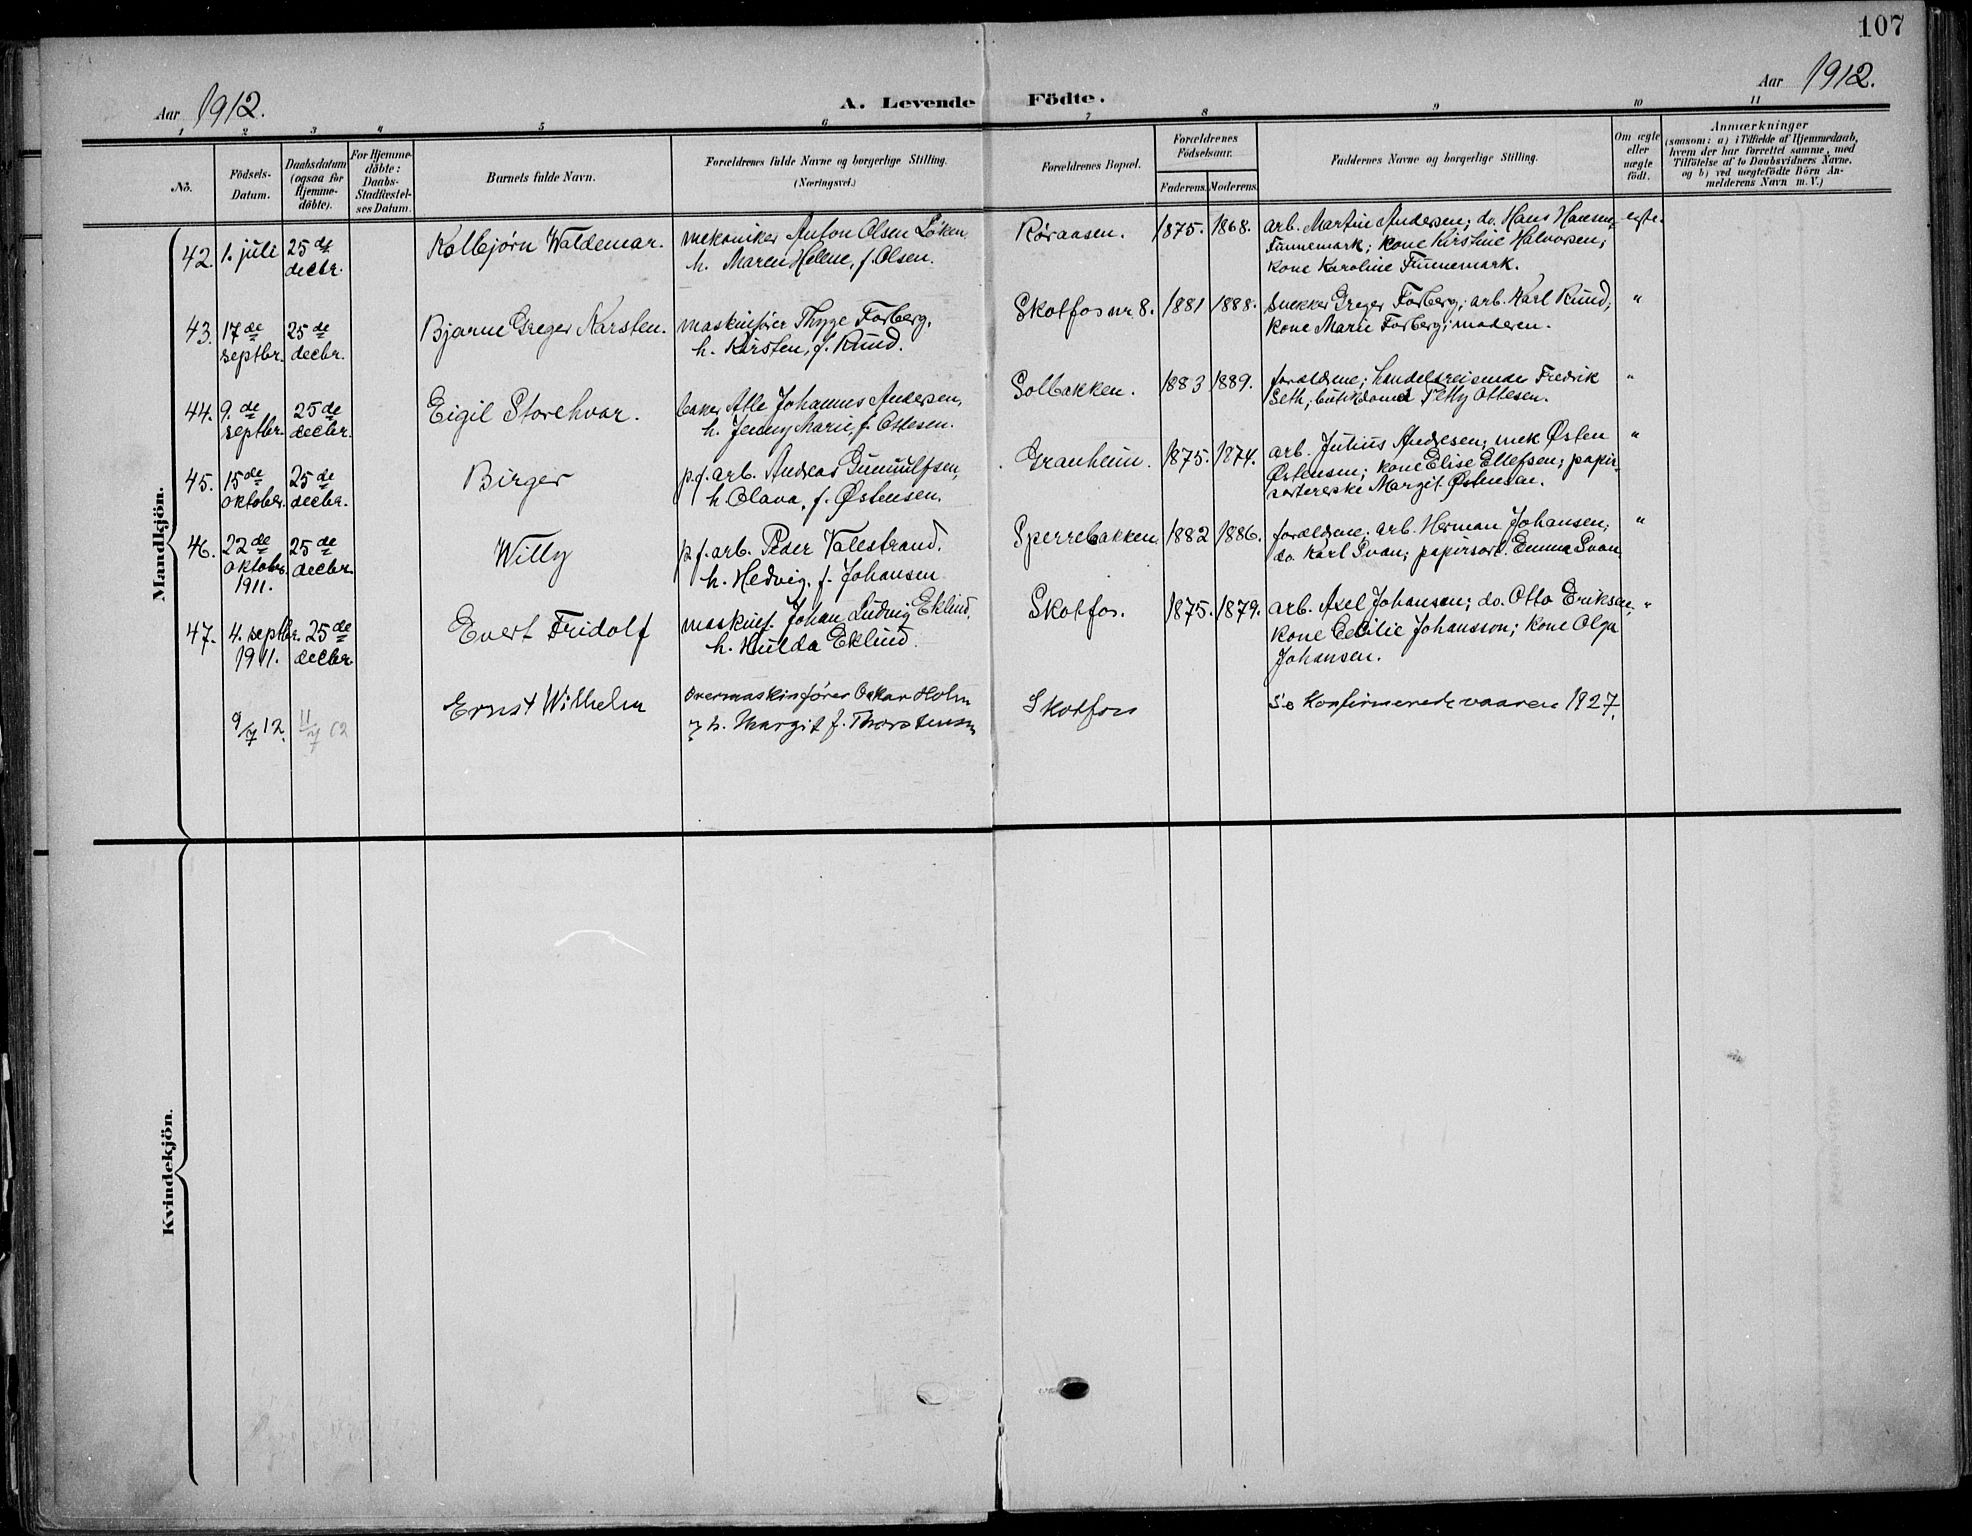 107
Aar 1912.
A. Levende Födte.
Aar 1912.
1 2 3 4 5 6 7 8 9 10 11
No.
Födsels-Datum.
Daabsdatum (ogsaa for Hjemme-döbte).
For Hjemme-döbte: Daabs-Stadfæstel-ses Datum.
Barnets fulde Navn.
Forældrenes fulde Navne og borgerlige Stilling.
(Næringsvei.)
Forældrenes Bopæl.
Forældrenes Födselsaar.
Faderens. Moderens.
Faddernes Navne og borgerlige Stilling.
Om ægte eller uægte födt.
Anmærkninger
(saasom: a) i Tilfælde af Hjemmedaab,
hvem der har forrettet samme, med
Tilföielse af to Daabsvidners Navne,
og b) ved uægtefödte Börn An-
melderens Navn m. V.)
Mandkjön.
42. 1. juli 25 de decbr. Kolbjørn Waldemar. mekaniker Anton Olsen Løken, h. Maren Helene, f. Olsen. Røraasen. 1875. 1868. arb. Martin Andersen; do. Hans Hansen,
Funnemark; kone Kirstine Halvorsen;
kone Karoline Funnemark. egte.
43. 17 de septbr. 25 de decbr. Bjarne Greger Karsten. maskinfører Thyge Forberg,
h. Kirsten, f. Rund. Skotfos nr 8. 1881 1888. snekker Greger Forberg; arb. Karl Rund;
kone Marie Forberg; moderen. "
44. 9. de septbr. 25 de decbr. Eigil Storehvar. baker Atle Johannes Andersen,
h. Jenny Marie, f. Ottesen. Solbakken. 1883 1889. forældrene; handelsreisende Fredrik
Seth; butikdame Petty Ottesen. "
45. 15 de oktober. 25 de decbr. Birger p.f. arb. Andreas Gunnulfsen,
h. Olava, f. Østensen. Granheim. 1875. 1874. arb. Julius Andresen; mek Østen
Østensen; kone Elise Ellefsen; papir
sorterske Margit Østensen. "
46. 22 de oktober. 1911. 25 de decbr. Willy p.f. arb. Peder Valestrand.
h. Hedvig, f. Johansen Sperrebakken 1882 1886. forældrene; arb. Herman Johansen;
do. Karl Svan; papirsort. Emma Svan "
47. 4. septbr. 1911. 25 de decbr. Evert Fridolf maskinf. Johan Ludvig Eklind,
h. Hulda Eklind. Skotfos. 1875. 1879. arb. Axel Johansen; do. Otto Eriksen;
kone Cecilie Johansson; kone Olga
Johansen. "
9/7 12. 11/7 12 Ernst Wilhelm Overmaskinfører Oskar Holm
og h. Margit f. Thorstensen Skotfos Se Konfirmerede vaaren 1927.
Kvindekjön.